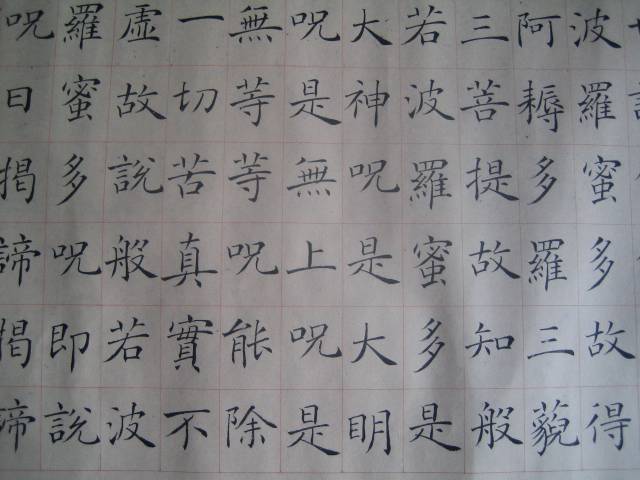 波羅蜜多故得
阿耨多羅三藐
三菩提故知般
若波羅蜜多是
大神呪是大明
呪是無上呪是
無等等呪能除
一切苦真實不
虛故說般若波
羅蜜多呪即說
呪曰揭諦揭諦